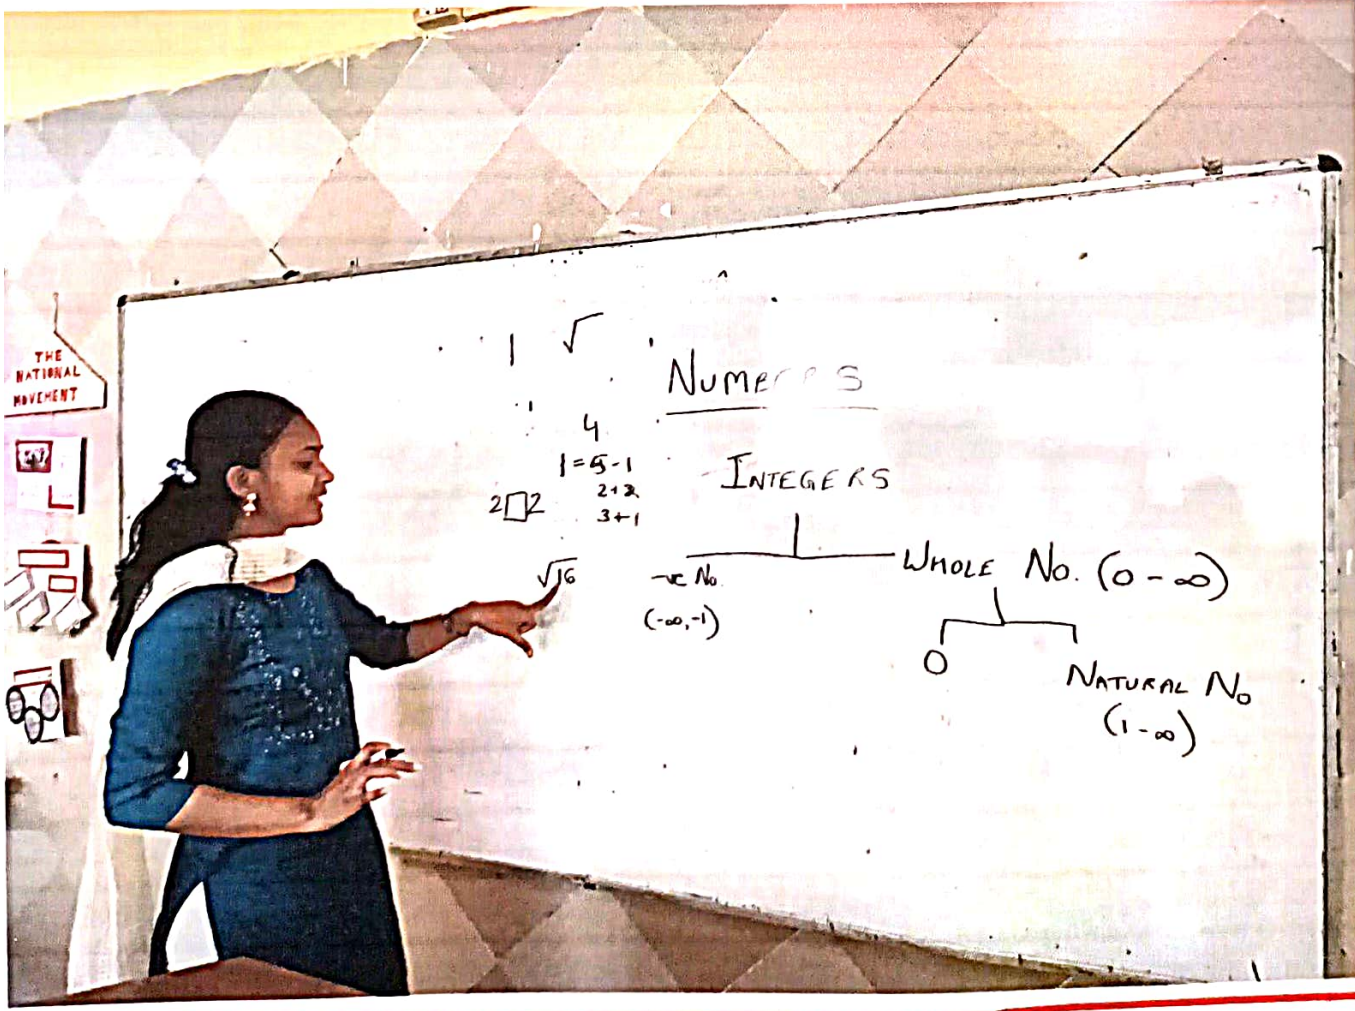 THE
NATIONAL
MOVEMENT
1 √
NUMBERS
4
1=5-1
2+2
3+1
2□2
√16
INTEGERS
-ve No.
(-∞,-1)
WHOLE No. (0-∞)
0
NATURAL No
(1-∞)